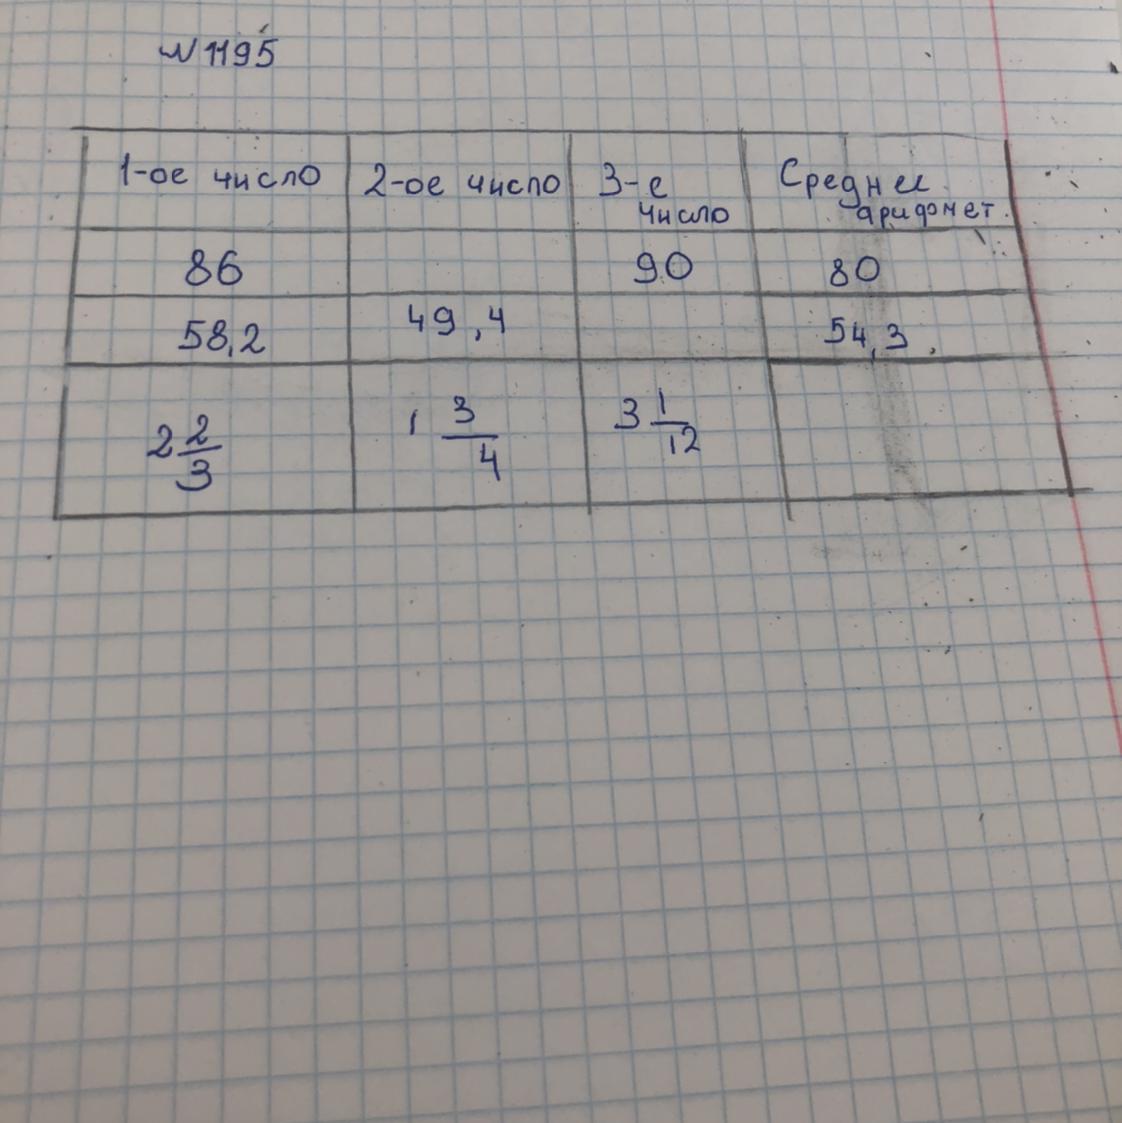 № 1195
1-ое число 2-ое число 3-е число Среднее арифомет.
86 90 80
58,2 49,4 54,3.
2 2/3 1 3/4 3 1/12